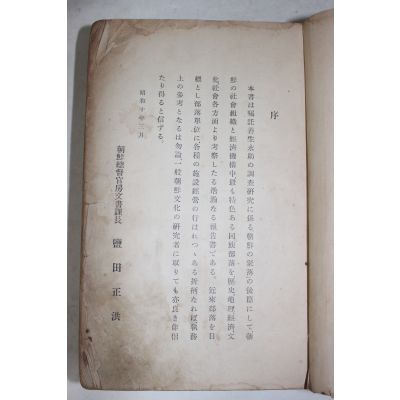 序
本書は囑託善生永助の調査研究に係る朝鮮の聚落の後篇にして朝
鮮の社會組織と經濟機構中最も特色ある同族部落を歷史、地理、經濟、文
化、社會各方面より考察したる浩瀚なる報告書である。近來部落を目
標とし部落單位に各種の施設經營の行はれつゝある折柄なれば執務
上の參考となるは勿論一般朝鮮文化の研究者に取りても亦良き伴侶
たり得ると信ずる。
昭和十年三月
朝鮮總督官房文書課長
鹽田正洪